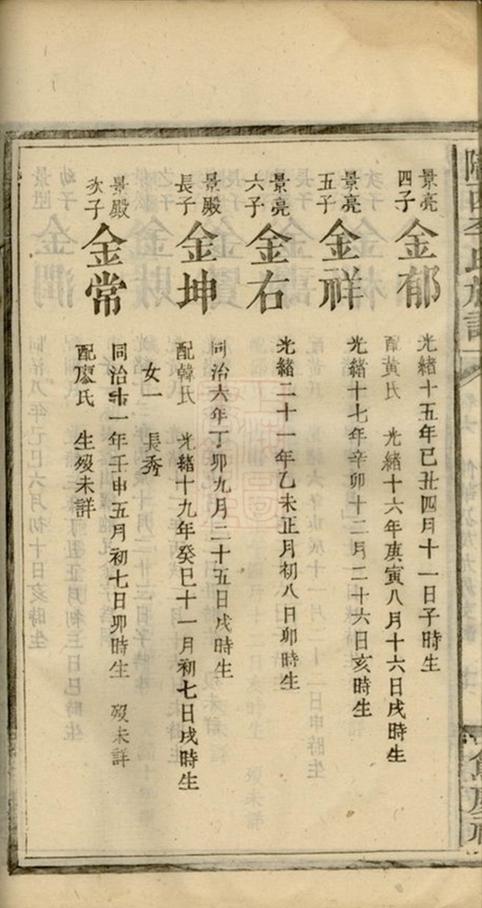 隴西李氏族譜
景亮
四子
金郁
光緒十五年己丑四月十一日子時生
配黃氏 光緒十六年庚寅八月十六日戌時生
景亮
五子
金祥
光緒十七年辛卯十二月二十六日亥時生
景亮
六子
金右
光緒二十一年乙未正月初八日卯時生
景殿
長子
金坤
同治六年丁卯九月二十五日戌時生
配韓氏 光緒十九年癸巳十一月初七日戌時生
女一 長秀
景殿
次子
金常
同治十一年壬申五月初七日卯時生 歿未詳
配廖氏 生歿未詳